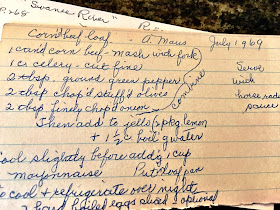 P.268 "Swanee River"
R.S.
Corn'd beef loaf - A. Maus July 1969
1 can corn'd beef - mash with fork
1 c. celery - cut fine
2 tbsp. ground green pepper
2 tbsp chop'd stuff'd olives
2 tbsp finely chop'd onion
combine
Serve
with
horse radish
sauce
Then add to jello, 1 pkg lemon
+ 1 1/2 c boil'g water
Cool slightly before add'g 1 cup
mayonnaise Put in loaf pan
to cool + refrigerate over night
2 hard boiled eggs sliced optional